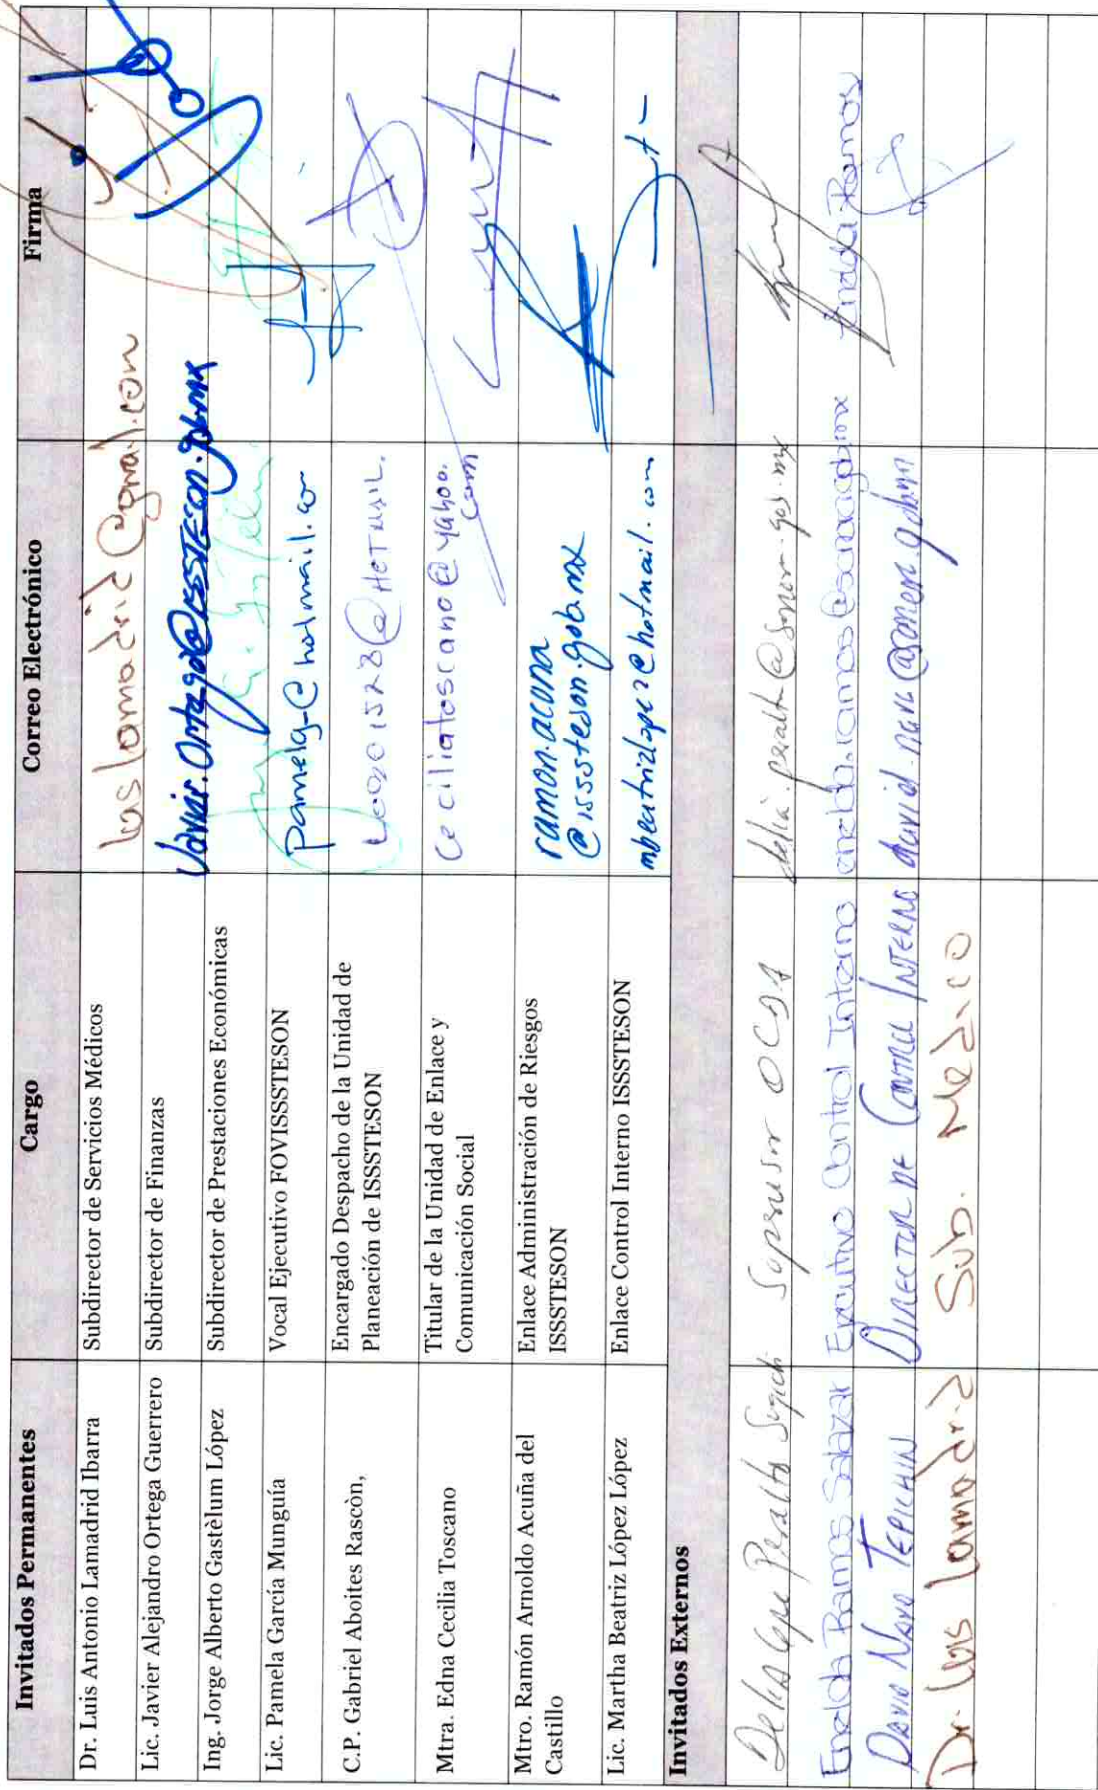 Invitados Permanentes Cargo Correo Electrónico Firma
Dr. Luis Antonio Lamadrid Ibarra Subdirector de Servicios Médicos luislamadrid@gmail.com
Lic. Javier Alejandro Ortega Guerrero Subdirector de Finanzas Javier.Ortega@isssteson.gob.mx
Ing. Jorge Alberto Gastèlum López Subdirector de Prestaciones Económicas
Lic. Pamela García Munguía Vocal Ejecutivo FOVISSSTESON
C.P. Gabriel Aboites Rascòn, Encargado Despacho de la Unidad de
Planeación de ISSSTESON
Mtra. Edna Cecilia Toscano Titular de la Unidad de Enlace y ceciliatoscano@yahoo.
Comunicación Social com
Mtro. Ramón Arnoldo Acuña del Enlace Administración de Riesgos ramon.acuna
Castillo ISSSTESON @isssteson.gob.mx
Lic. Martha Beatriz López López Enlace Control Interno ISSSTESON mbeatrizlopez2@hotmail.com
Invitados Externos
Peralta Supervisor OCDA delia.peralta@sonora.gob.mx
Enelda Ramos Salazar Ejecutivo Control Interno enelda.ramos@sonora.gob.mx Enelda Ramos
David Nava Tepichin Director de Control Interno david.nava@sonora.gob.mx
Dr. Luis Lamadrid Sub. Medico